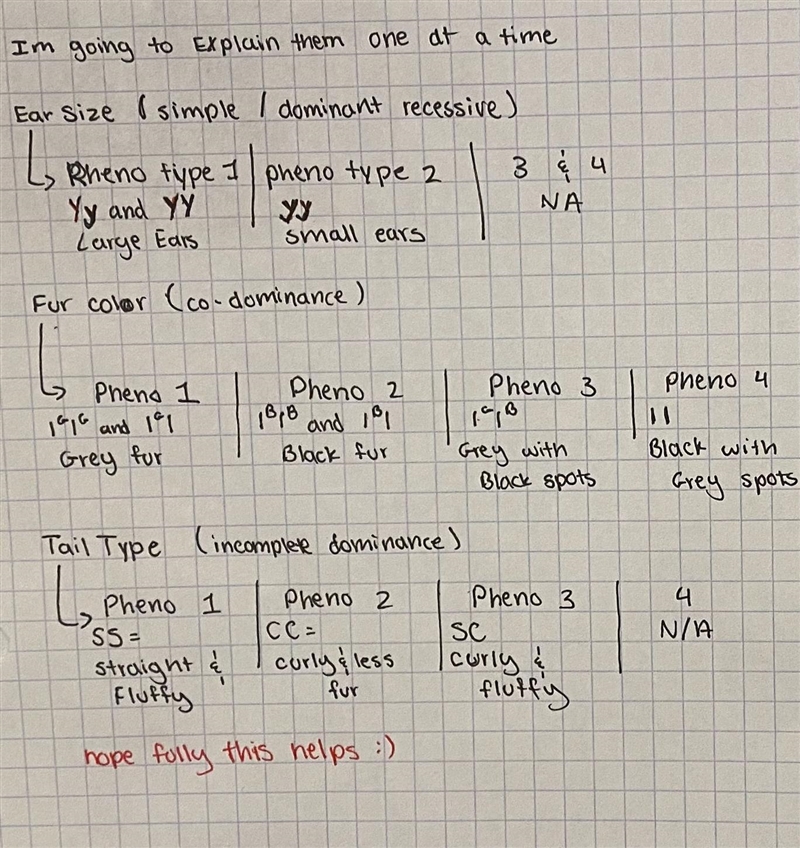 Im going to Explain them one at a time
Ear Size ( simple / dominant recessive)
Pheno type 1 | pheno type 2 | 3 & 4
Yy and YY | yy | NA
Large Ears | small ears
Fur color (co-dominance)
Pheno 1 | Pheno 2 | Pheno 3 | Pheno 4
IᴳIᴳ and IᴳI | IᴮIᴮ and IᴮI | IᴳIᴮ | II
Grey fur | Black fur | Grey with | Black with
Black spots | Grey spots
Tail Type (incomplete dominance)
Pheno 1 | Pheno 2 | Pheno 3 | 4
SS= | CC= | SC | N/A
straight & | curly & less | curly &
Fluffy | fur | fluffy
hope fully this helps :)